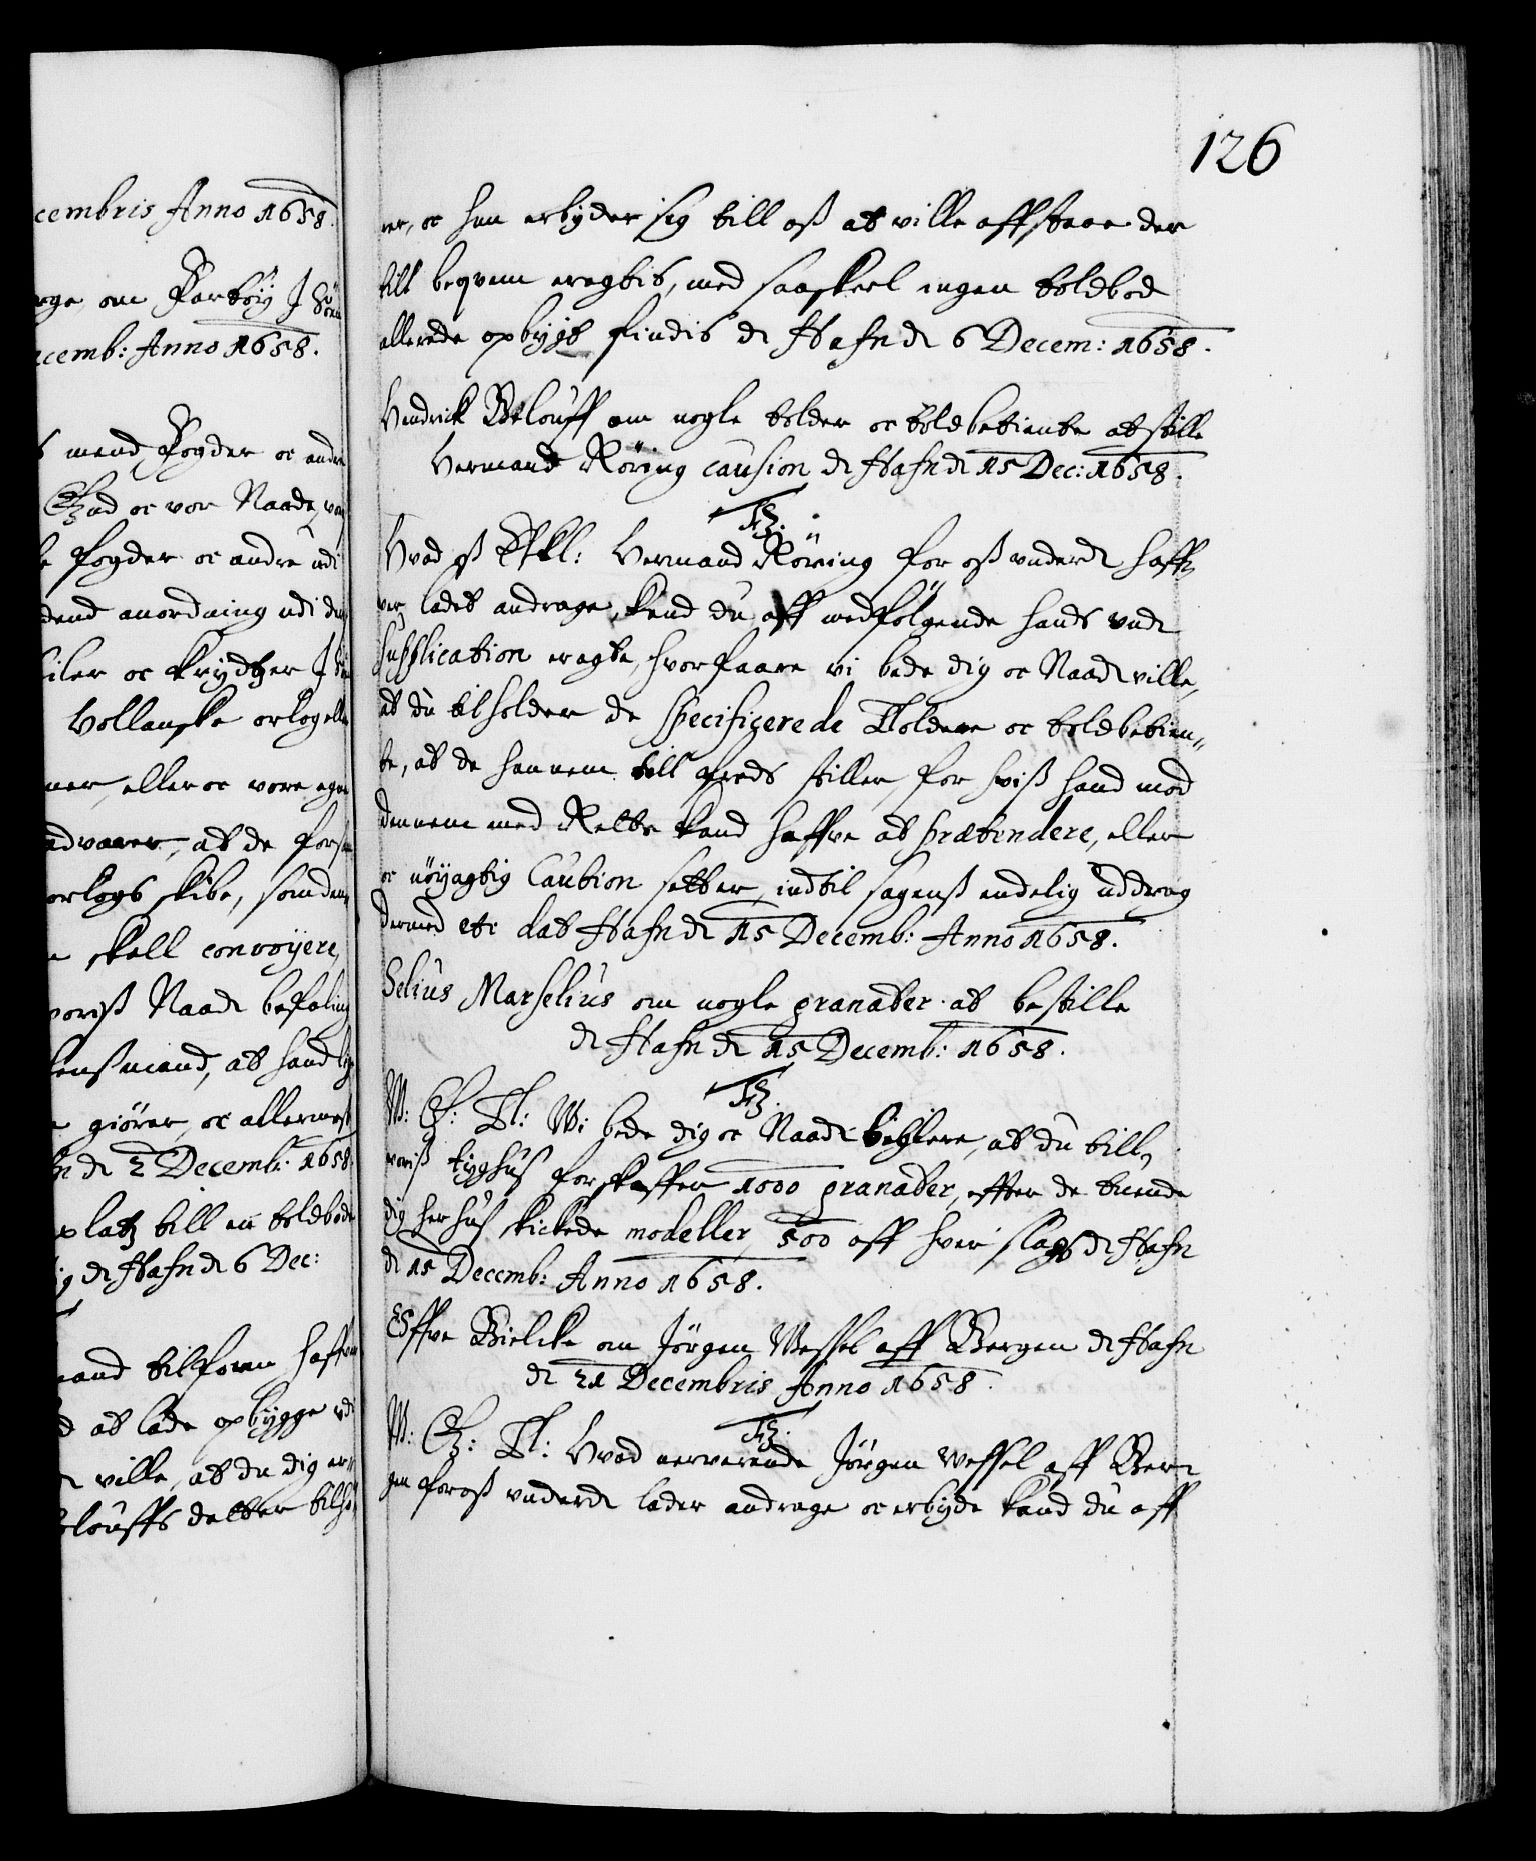 cembris Anno 1658.
rge, om Partöÿ J Sön
ecemb: Anno 1658.
s mend, Fogder oc andre
Gud oc vor Naade, vor
e fogder oc andre udi
dend anordning udi den
iler oc krydtzer J
Hollanske orlog eller
ner, eller oc vore egne
advarer, at de fors
orlogs skibe, som den
e skall convoyere,
voris Naade befaling
lensmand, at hand
e giörer, oc allermest
fn de 2 Decemb: 1658.
platz till en toldbode
ig de Hafn de 6 Dec:
mand tilforn haffver
d at lade opbygge udi
ville, at du dig er
elouffs detter tilhö
126
rer, oc han erbyder sig till oss at ville affstaae der
till beqvem eragtis, med saaskeel ingen toldbod
allerede opbygt findis de Hafn de 6 Decem: 1658.
Hendrick Belouff om nogle tolder oc toldbetiente at stille
Hermand Röring causion de Hafn de 15 Dec: 1658.
F3.
Hvad oss Elskl: Hermand Röring for oss underd haff,,
ver ladet andrage, kand du aff medfölgende hands und
supplication eragte, hvorfaare vi bede dig oc Naad ville,
at du tilholder de specificerede Toldere oc toldbetien,,
te, at de hannem till freds stiller, for hvis hand mod
dennem med Rette kand haffve at prætendere, eller
oc nöyagtig Caution setter, indtil sagenss endelig uddrag
dermed etc dat Hafn de 15 Decemb: Anno 1658.
Selius Marselius om nogle granater at bestille
de Hafn de 15 Decemb: 1658.
F3.
W: G: T: Wi bede dig oc Naad begiere, at du till
voriss tyghus forskaffer 1000 granater, effter de tuende
dig her hus skickede modeller, 500 aff hver slags de Hafn
de 15 Decemb: Anno 1658.
Offve Bielcke om Jörgen Wessel aff Bergen de Hafn
de 21 Decembris Anno 1658.
F3.
W: G: T: Hvad nerverende Jörgen Wessel aff Ber,,
gen for oss underd lader andrage oc erbyde kand du aff